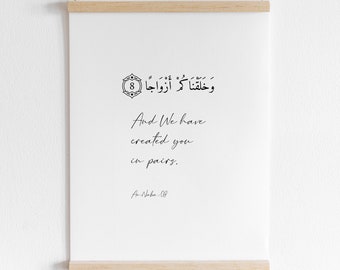 وَخَلَقْنَاكُمْ أَزْوَاجًا 8
And We have
created you
in pairs.
An-Naba - 08